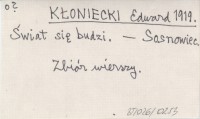 o?
KŁONIECKI Edward 1919.
Świat się budzi. — Sosnowiec.
Zbiór wierszy.